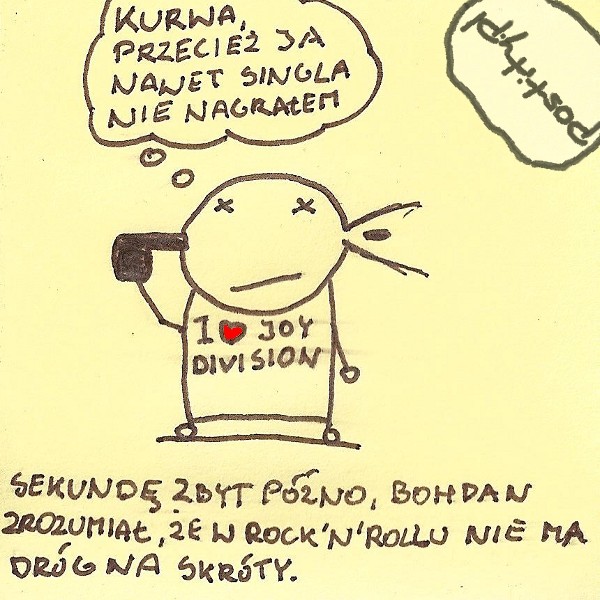 KURWA,
PRZECIEŻ JA
NAWET SINGLA
NIE NAGRAŁEM
postit.hyp!
I ❤ JOY
DIVISION
SEKUNDĘ ZBYT PÓŹNO, BOHDAN
ZROZUMIAŁ, ŻE W ROCK'N'ROLLU NIE MA
DRÓG NA SKRÓTY.